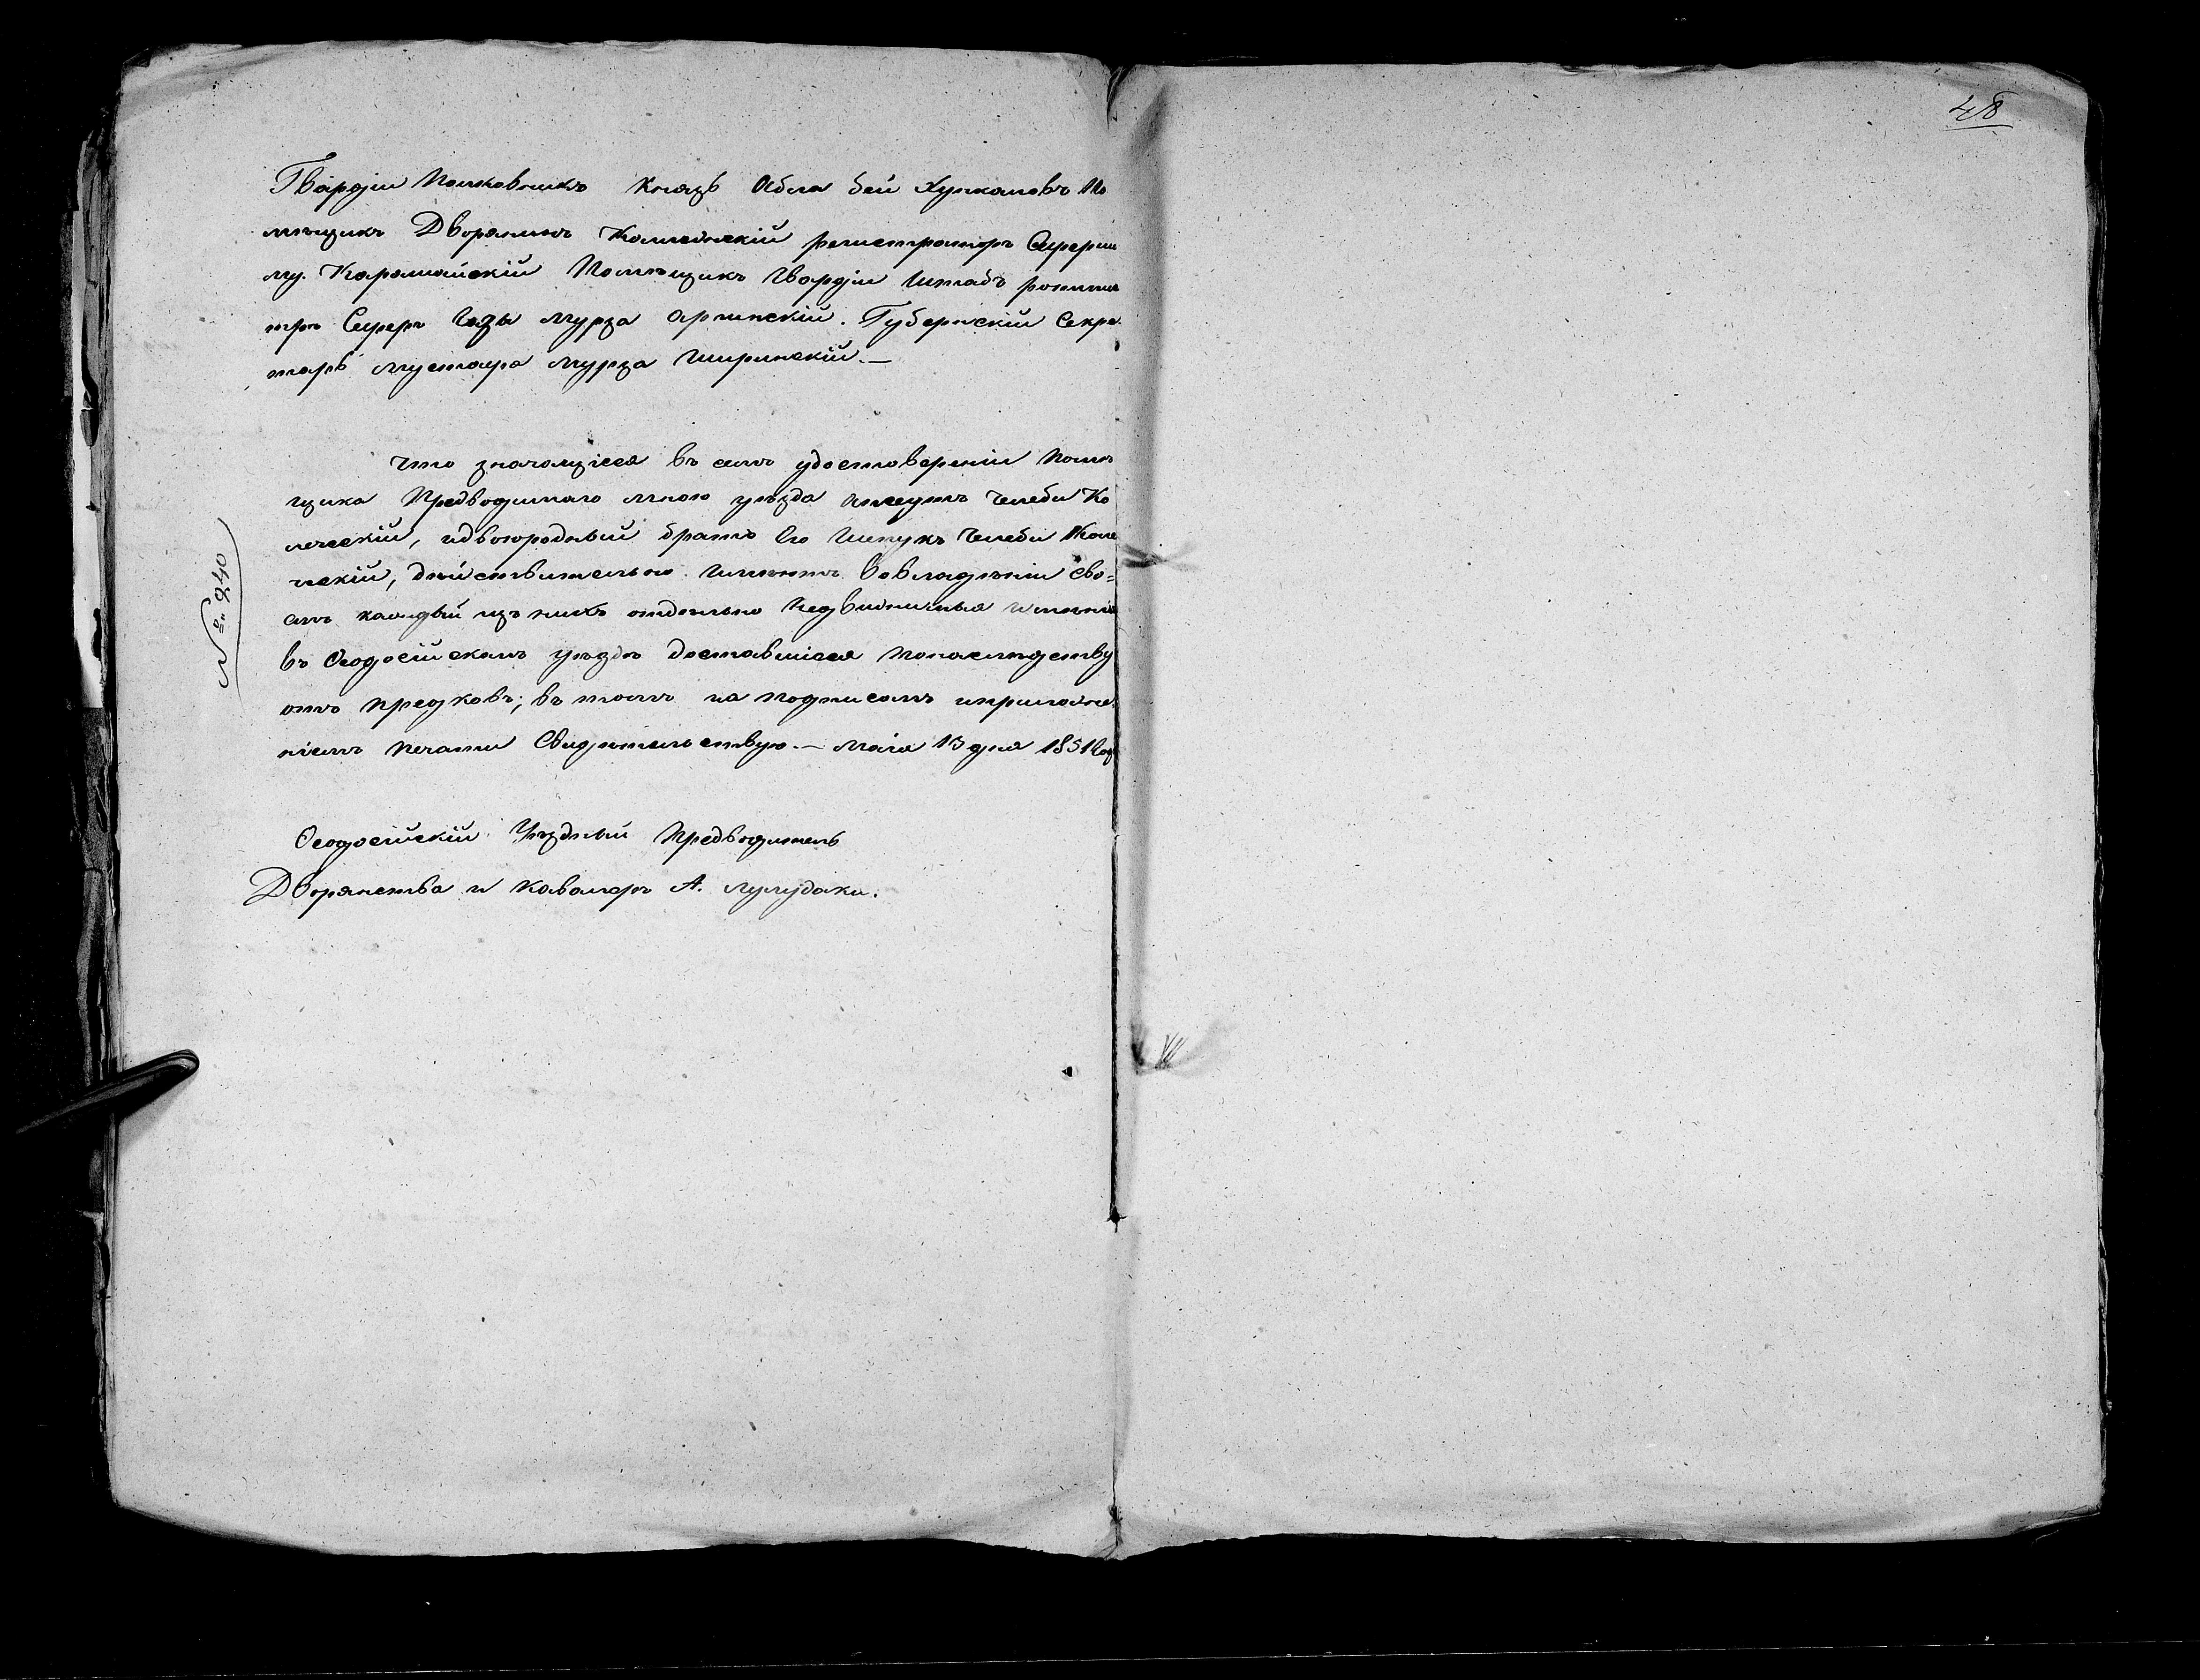 48
Гвардіи Полковникъ Князь Абла бей Хункаловъ По
мѣщикъ Дворянинъ Коллежскій регистраторъ Сеферши
му. Карашайскій Помѣщикъ Гвардіи Штабъ ротми
стръ Сеферъ Газы Мурза Аргинскій. Губернскій Секре
тарь Мустафа Мурза Ширинскій.—
Что значащіеся въ семъ удостовереніи Помѣ
щика Предводимаго мною уѣзда Челеби Ко
леческій, идвоюродный братъ Его Челеби Коле
ческій, дѣйствительно Имѣютъ вовладѣніи сво=
емъ каждый изъ нихъ отдельно Недвижимыя Имѣнія
въ Ѳеодосійскомъ уѣздѣ доставшіеся Понаслѣдству
отъ предковъ; въ томъ за подписомъ иприложе
ніемъ печати Свидѣтельствую.— Маія 13 дня 1851 год
№ 240
Ѳеодосійскій Уѣздный Предводитель
Дворянства и Кавалеръ А. Лулудаки.